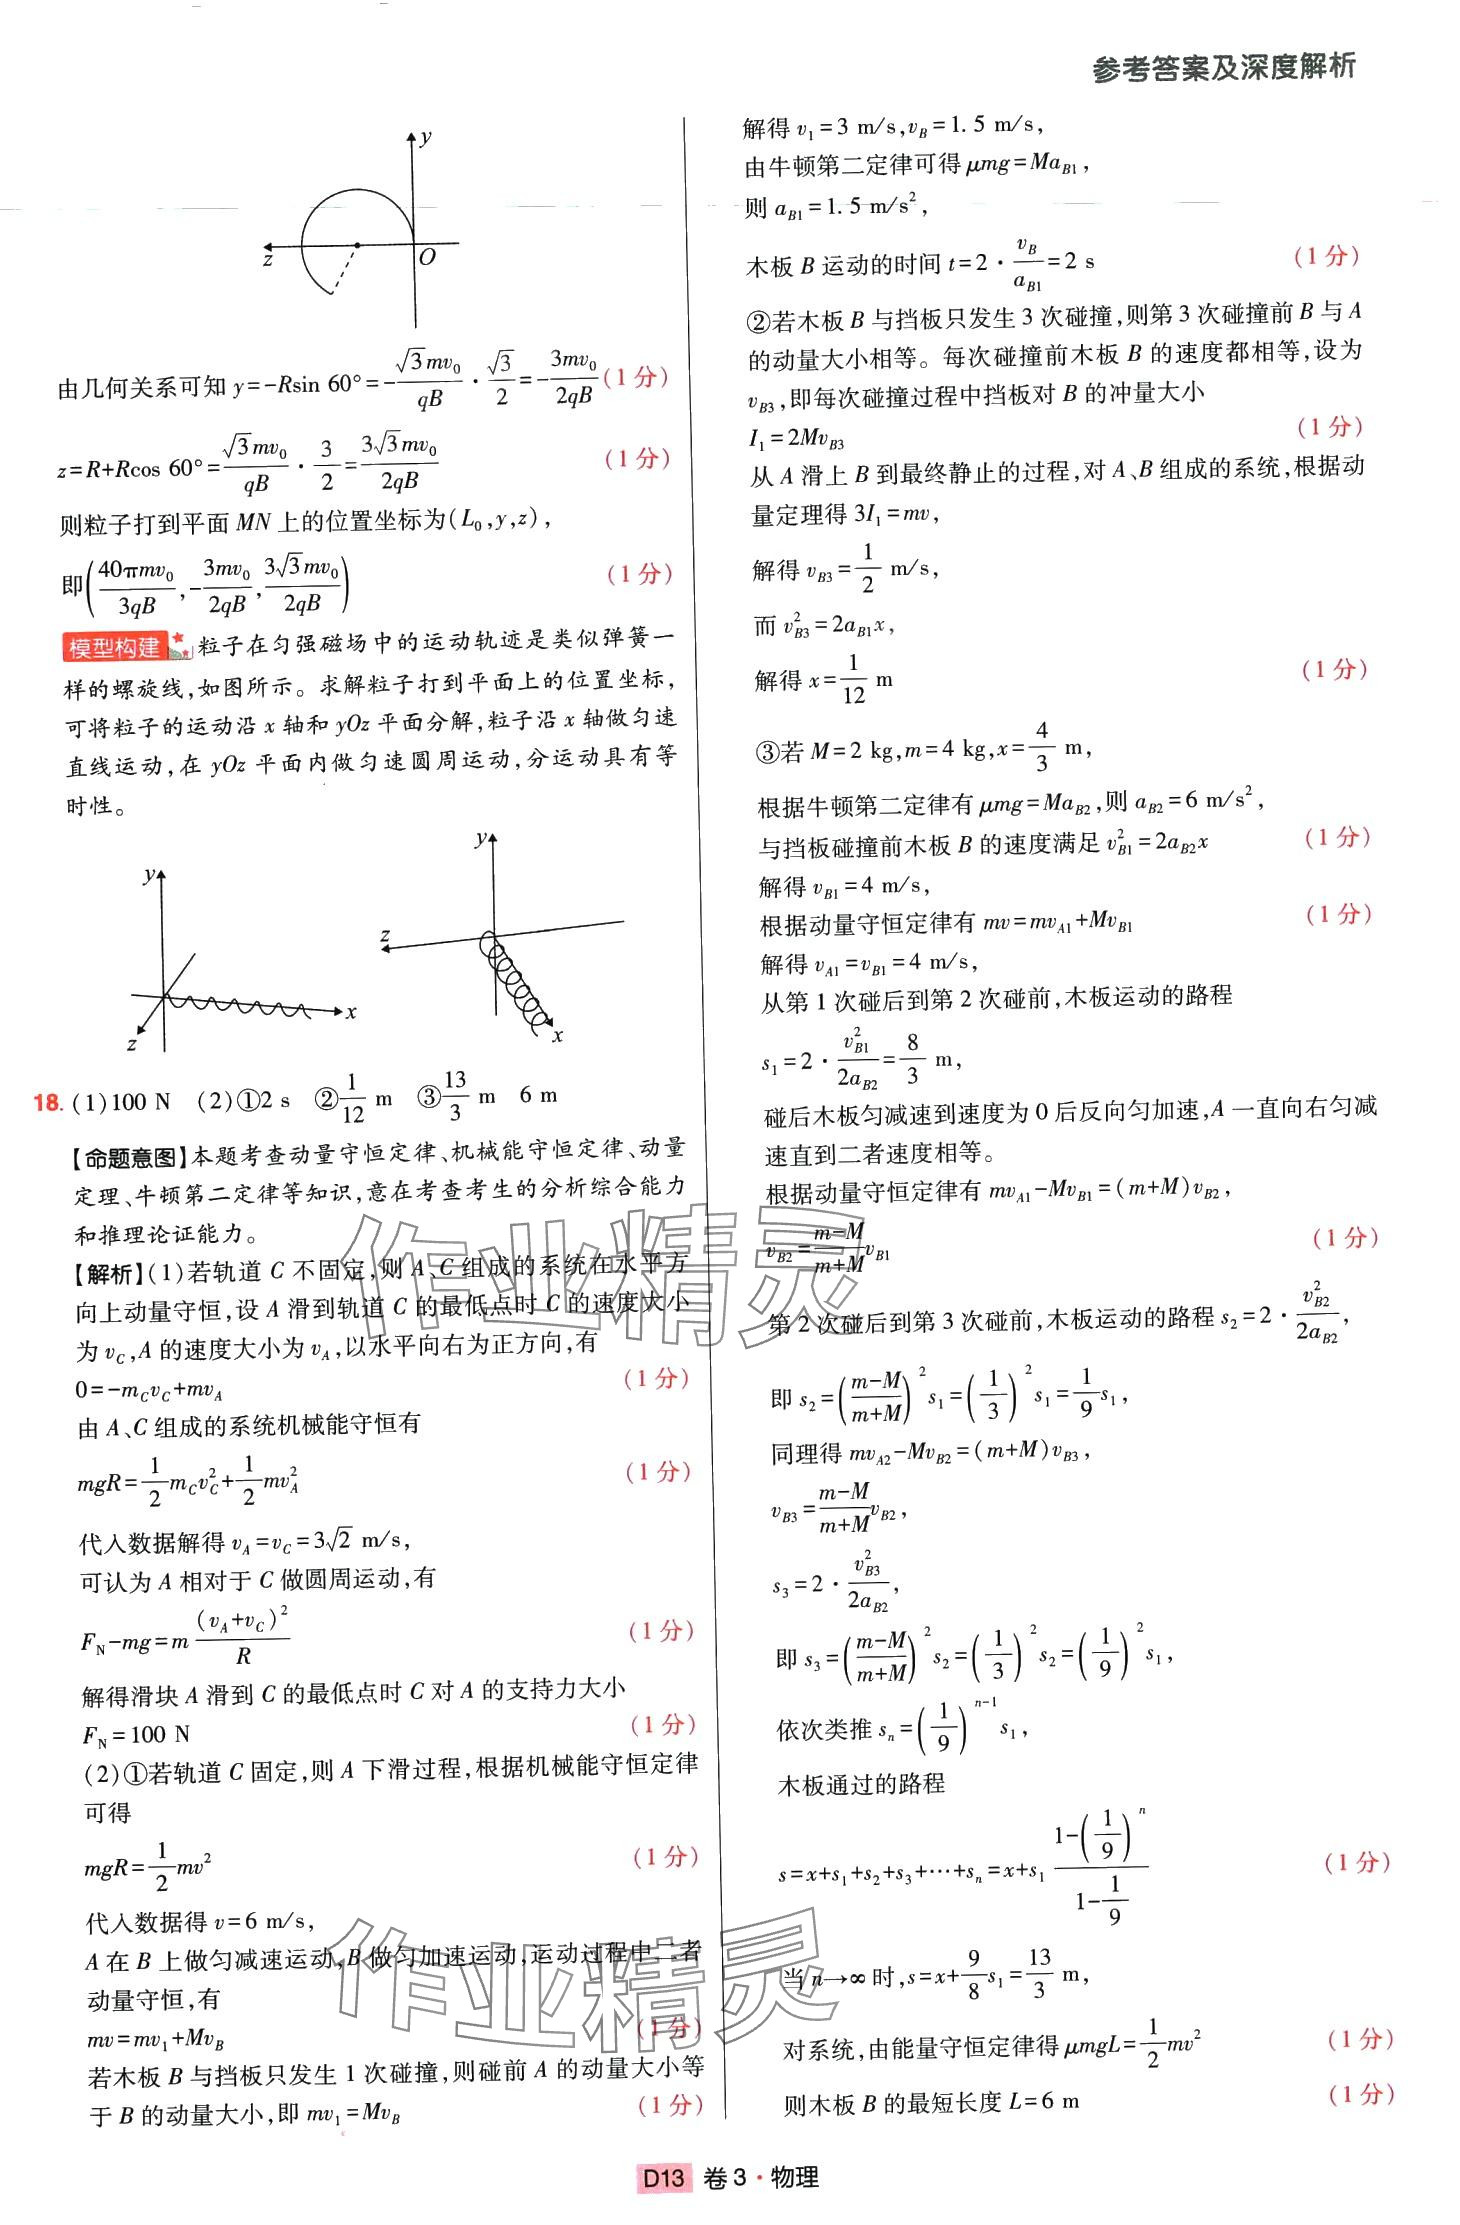 参考答案及深度解析
y
z
O
由几何关系可知 y=-Rsin 60°=-√3mv₀/qB·√3/2=-3mv₀/2qB(1 分)
z=R+Rcos 60°=√3mv₀/qB·3/2=3√3mv₀/2qB (1 分)
则粒子打到平面 MN 上的位置坐标为(L₀,y,z),
即(40πmv₀/3qB,-3mv₀/2qB,3√3mv₀/2qB) (1 分)
模型构建 粒子在匀强磁场中的运动轨迹是类似弹簧一
样的螺旋线,如图所示。求解粒子打到平面上的位置坐标,
可将粒子的运动沿 x 轴和 yOz 平面分解,粒子沿 x 轴做匀速
直线运动,在 yOz 平面内做匀速圆周运动,分运动具有等
时性。
y
x
z
y
z
x
18. (1)100 N (2)①2 s ②1/12 m ③13/3 m 6 m
【命题意图】本题考查动量守恒定律、机械能守恒定律、动量
定理、牛顿第二定律等知识,意在考查考生的分析综合能力
和推理论证能力。
【解析】(1)若轨道 C 不固定,则 A、C 组成的系统在水平方
向上动量守恒,设 A 滑到轨道 C 的最低点时 C 的速度大小
为 v_C,A 的速度大小为 v_A,以水平向右为正方向,有
0=-m_Cv_C+mv_A (1 分)
由 A、C 组成的系统机械能守恒有
mgR=1/2m_Cv_C²+1/2mv_A² (1 分)
代入数据解得 v_A=v_C=3√2 m/s,
可认为 A 相对于 C 做圆周运动,有
F_N-mg=m(v_A+v_C)²/R (1 分)
解得滑块 A 滑到 C 的最低点时 C 对 A 的支持力大小
F_N=100 N (1 分)
(2)①若轨道 C 固定,则 A 下滑过程,根据机械能守恒定律
可得
mgR=1/2mv² (1 分)
代入数据得 v=6 m/s,
A 在 B 上做匀减速运动,B 做匀加速运动,运动过程中二者
动量守恒,有
mv=mv₁+Mv_B (1 分)
若木板 B 与挡板只发生 1 次碰撞,则碰前 A 的动量大小等
于 B 的动量大小,即 mv₁=Mv_B (1 分)
解得 v₁=3 m/s,v_B=1.5 m/s,
由牛顿第二定律可得 μmg=Ma_B1,
则 a_B1=1.5 m/s²,
木板 B 运动的时间 t=2·v_B/a_B1=2 s (1 分)
②若木板 B 与挡板只发生 3 次碰撞,则第 3 次碰撞前 B 与 A
的动量大小相等。每次碰撞前木板 B 的速度都相等,设为
v_B3,即每次碰撞过程中挡板对 B 的冲量大小
I₁=2Mv_B3 (1 分)
从 A 滑上 B 到最终静止的过程,对 A、B 组成的系统,根据动
量定理得 3I₁=mv,
解得 v_B3=1/2 m/s,
而 v_B3²=2a_B1x,
解得 x=1/12 m (1 分)
③若 M=2 kg,m=4 kg,x=4/3 m,
根据牛顿第二定律有 μmg=Ma_B2,则 a_B2=6 m/s²,
与挡板碰撞前木板 B 的速度满足 v_B1²=2a_B2x (1 分)
解得 v_B1=4 m/s,
根据动量守恒定律有 mv=mv_A1+Mv_B1 (1 分)
解得 v_A1=v_B1=4 m/s,
从第 1 次碰后到第 2 次碰前,木板运动的路程
s₁=2·v_B1²/2a_B2=8/3 m,
碰后木板匀减速到速度为 0 后反向匀加速,A 一直向右匀减
速直到二者速度相等。
根据动量守恒定律有 mv_A1-Mv_B1=(m+M)v_B2,
v_B2=(m-M)/(m+M)v_B1 (1 分)
第 2 次碰后到第 3 次碰前,木板运动的路程 s₂=2·v_B2²/2a_B2,
即 s₂=((m-M)/(m+M))²s₁=(1/3)²s₁=1/9s₁,
同理得 mv_A2-Mv_B2=(m+M)v_B3,
v_B3=(m-M)/(m+M)v_B2,
s₃=2·v_B3²/2a_B2,
即 s₃=((m-M)/(m+M))²s₂=(1/3)²s₂=(1/9)²s₁,
依次类推 s_n=(1/9)^(n-1)s₁,
木板通过的路程
s=x+s₁+s₂+s₃+⋯+s_n=x+s₁(1-(1/9)^n)/(1-1/9) (1 分)
当 n→∞ 时,s=x+9/8s₁=13/3 m,
对系统,由能量守恒定律得 μmgL=1/2mv² (1 分)
则木板 B 的最短长度 L=6 m (1 分)
作业精灵
作业精灵
D13 卷 3·物理